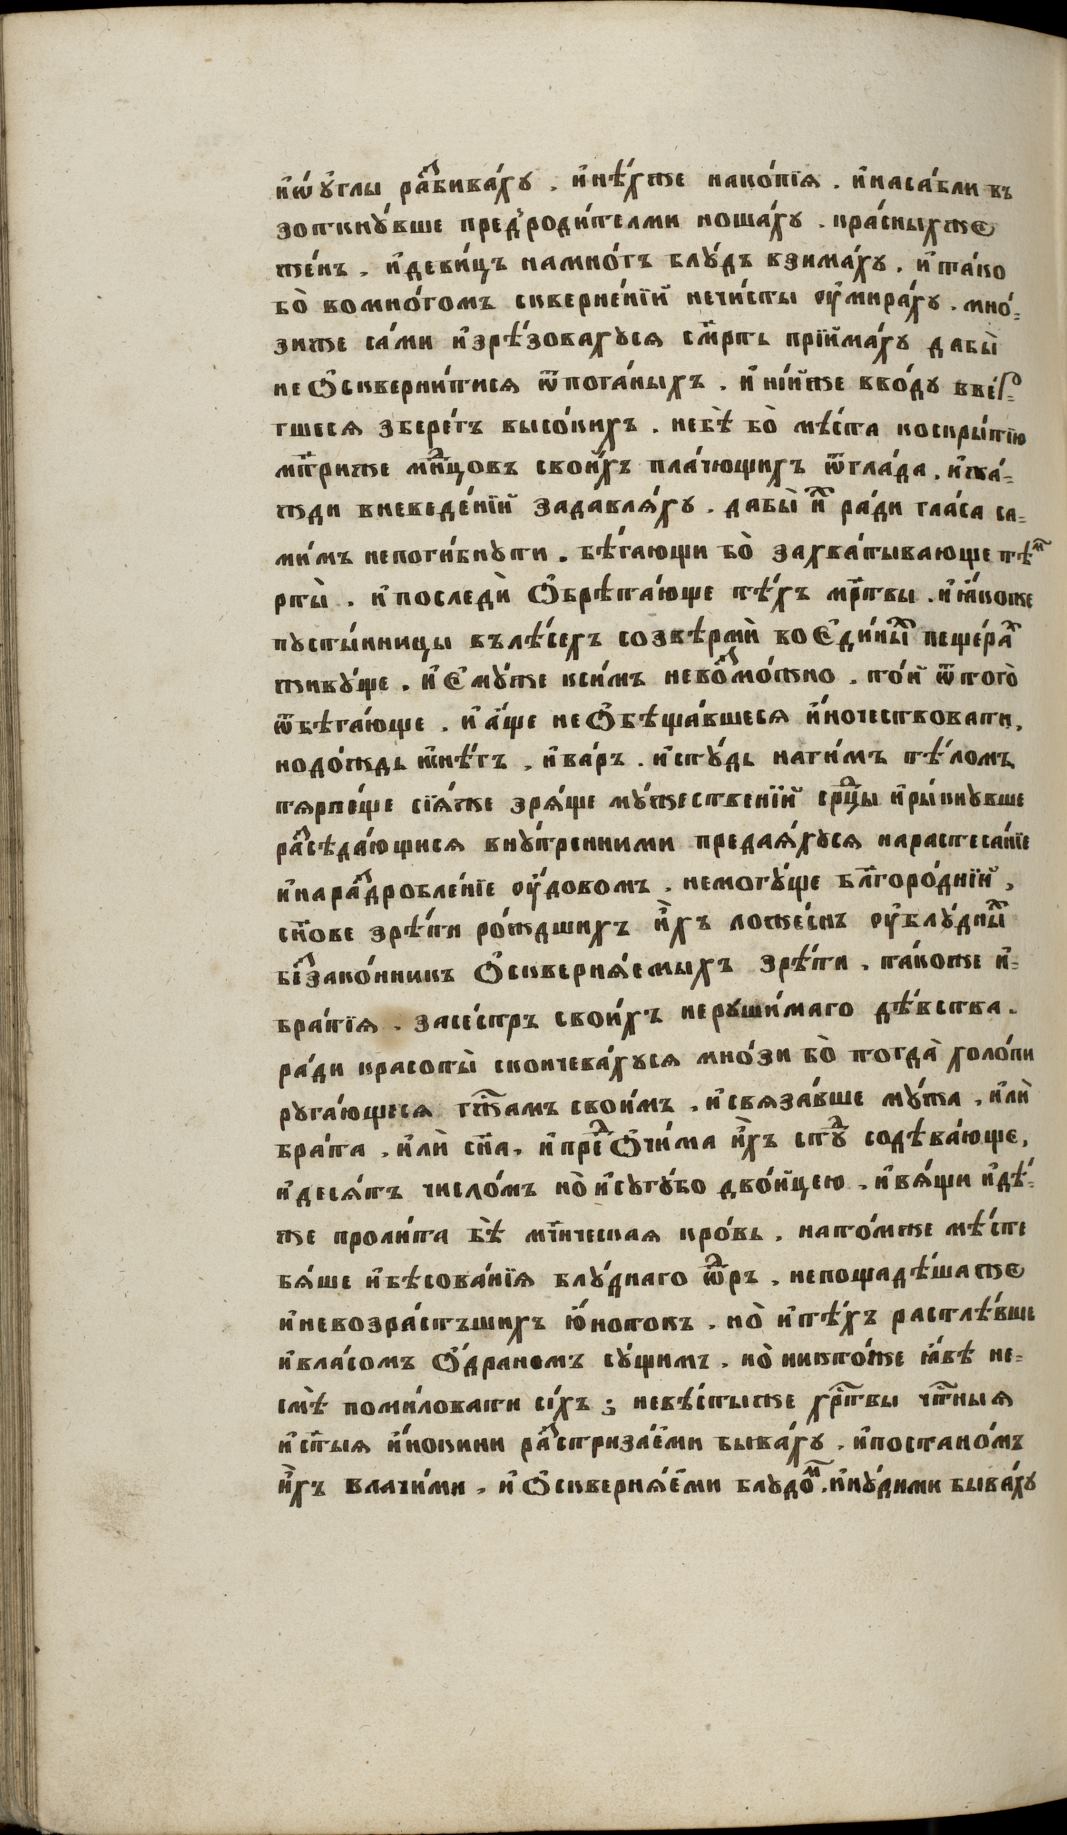 и҆ѡ҆ у҆́глы ра̾збива́хꙋ . и҆нѣ́хже нако́пїѧ . и҆наса́бли въ
зоткнꙋ́вше пред̾роди́телми ноша́хꙋ . кра́сныхже
же́нъ , и҆деви́цъ намно́гъ блꙋ́дъ взима́хꙋ , и҆та́ко
бо̀ вомно́гомъ скверне́нїй нечи́сты оу҆мира́хꙋ . мно́-
зиже са́ми и҆зрѣ́зовахꙋсѧ см҃рть прїйма́хꙋ дабы̀
не Ѻ҆скверни́тисѧ ѿпога́ныхъ . и҆ні́йже вво́дꙋ вве́р-
гшесѧ збере́гъ высо́кихъ . небѣ̀ бо̀ мѣ́ста коскры́тїю
мт҃риже мн҃цовъ свои́хъ пла́чющихъ ѿгла́да , и҆жа́-
жди вневеде́нїй задавлѧ́хꙋ . дабы̀ и҆х ра́ди гла́са са-
ми́мъ непоги́бнꙋти . бѣ́гающи бо̀ захва́тывающе тѣм
рты̀ . и҆последѝ Ѻ҆брѣта́юще тѣ́хъ мр҃твы . и҆ꙗ҆́коже
пꙋсты́нницы вълѣ́сехъ созвѣрмѝ во Є҆ди́ных пеще́рах
живꙋ́ще . и҆ Є҆мꙋ́же всѝмъ нево̾змо́жно . то́й ѿтого̀
ѿбѣга́юще . и҆ а҆́ще не Ѻ҆бѣща́вшесѧ и҆́ночествовати ,
нодо́ждь и҆снѣ́гъ , и҆ва́ръ . и҆стꙋ́дь наги́мъ тѣ́ломъ
тѧрпѧ́ще сїѧ́же зрѧ́ще мꙋ́жественїй ср҃дцы и҆ры́кнꙋвше
ра̾зсѣда́ющисѧ внꙋ́тренними предаѧ́хꙋсѧ нарастеса́нїе
и҆нара̾здробле́нїе оу҆́довомъ . немогꙋ́ще бл҃горо́днїй ,
сн҃ове зрѣ́ти ро́ждшихъ и҆̀хъ ложе́снъ оу҆блꙋ́дных
бе̾ззако́нникъ Ѻ҆сквернѧ́емыхъ зрѣ́ти . та́коже и҆-
бра́тїѧ . засе́стръ свои́хъ нерꙋши́маго дѣ́вства .
ра́ди красоты̀ скончева́хꙋсѧ мно́зи бо̀ тогда̀ холо́пи
рꙋга́ющесѧ гж҃амъ свои́мъ . и҆свѧза́вше мꙋ́жа , и҆лѝ
бра́та , и҆лѝ сн҃а . и҆пред Ѻ҆чи́ма и҆̀хъ стꙋд содѣва́юще ,
и҆десѧ́тъ число́мъ но̀ и҆сꙋгꙋ́бо дво́йцею . и҆вѧ́щи и҆дѣ́-
же проли́та бѣ̀ мч҃нческаѧ кро́вь . нато́мже мѣ́сте
бѧ́ше и҆бѣсова́нїѧ блꙋ́днаго ѿ́дръ . непощадѣ́шаже
и҆невозра́стъшихъ ю҆́нотокъ . но̀ и҆тѣ́хъ растлѣ́вше
и҆вла́сомъ Ѻ҆́драномъ сꙋ́щимъ . но̀ никто́же ꙗ҆́вѣ не-
смѣ̀ поми́ловати си́хъ ; невѣ́стыже хр҃твы чт҃ныѧ
и҆ст҃ыѧ и҆́нокини ра̾стриза́еми быва́хꙋ . и҆постано́мъ
и҆̀хъ влачи́ми , и҆ Ѻ҆сквернѧ́еми блꙋдо́м . и҆нꙋ́дими быва́хꙋ